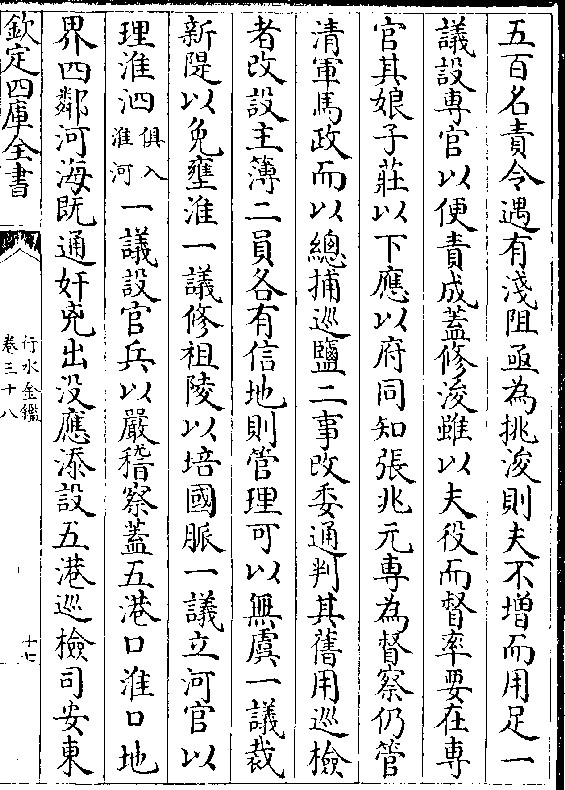 五百名責令遇有淺阻亟為挑浚則夫不增而用足一
議設專官以便責成蓋修浚雖以夫役而督率要在專
官其娘子莊以下應以府同知張兆元專為督察仍管
清軍馬政而以總捕巡鹽二事改委通判其舊用巡檢
者改設主簿二員各有信地則管理可以無虞一議裁
新隄以免壅淮一議修祖陵以培國脈一議立河官以
理淮泗俱入淮河一議設官兵以嚴稽察蓋五港口淮口地
界四鄰河海既通奸兇出没應添設五港巡檢司安東
欽定四庫全書
行水金鑑
卷三十八
十七